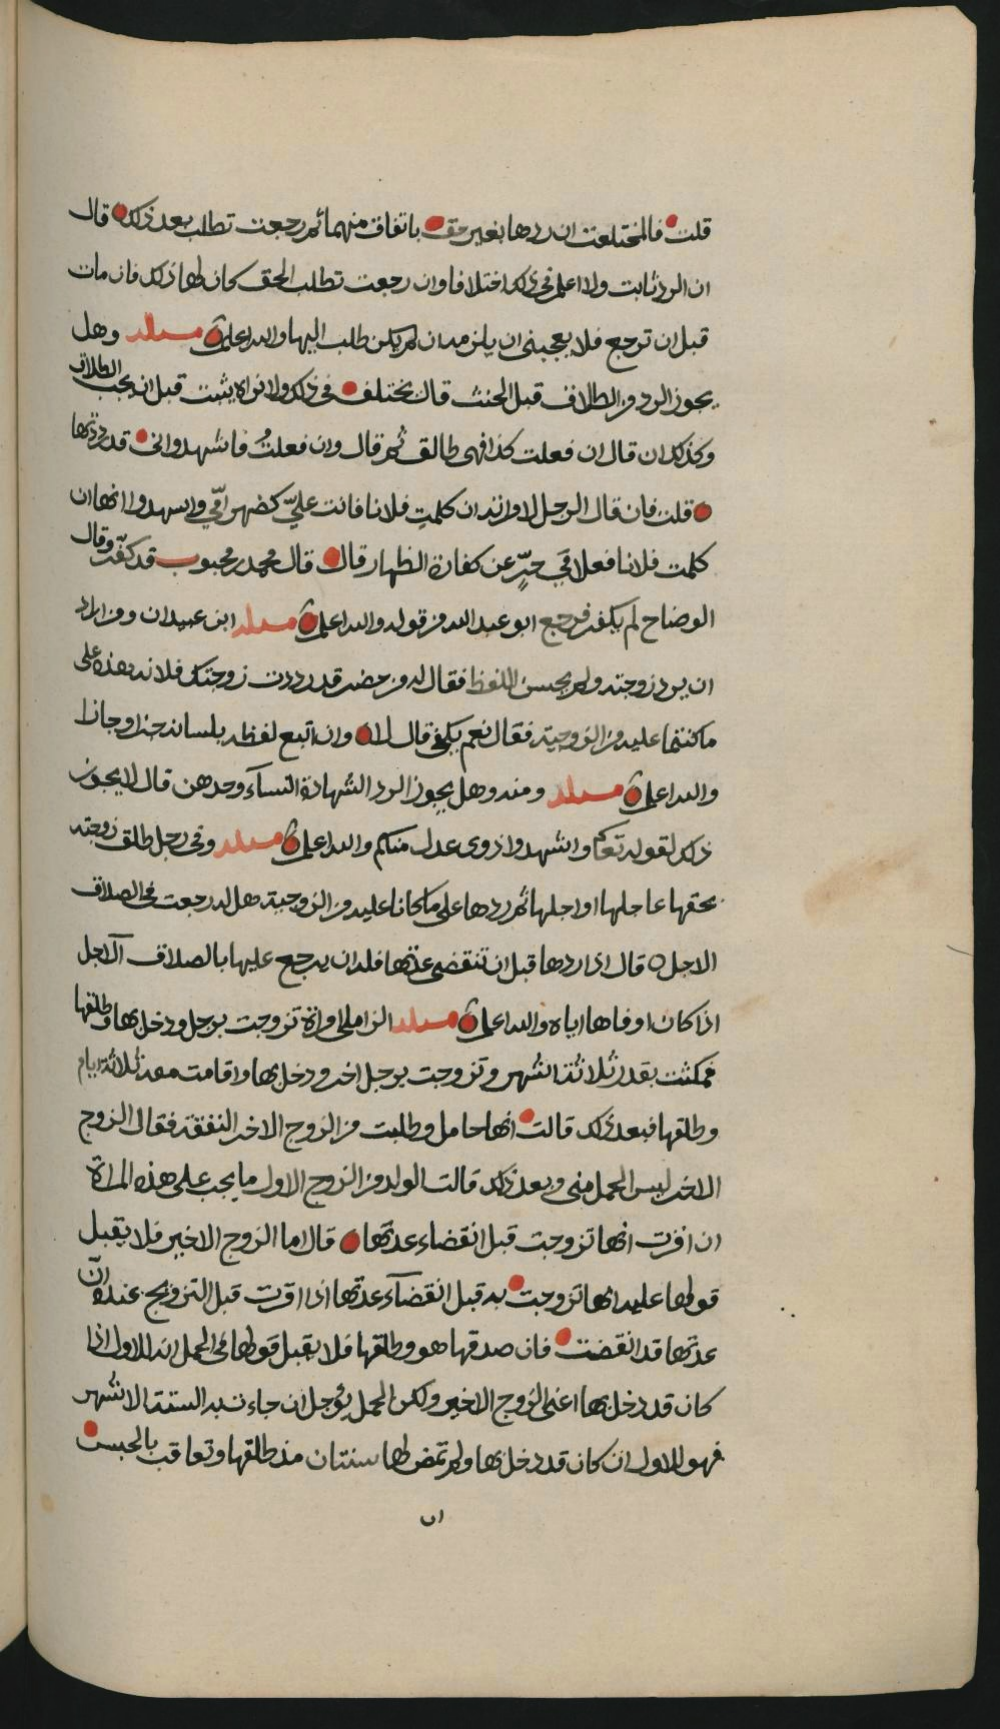 قلت فالمختلعت ان ردها بغير حق باتفاق منهما ثم رجعت تطلب بعد ذلك قال
ان الرد ثابت ولا اعلم في ذلك اختلافا وان رجعت تطلب الحق كان لها ذلك فان مات
قبل ان ترجع فلا يعجبني ان يلزمه ان لم يكن طلب اليها والله اعلم مسئله وهل
يجوز الرد من الطلاق قبل الحنث قال يختلف في ذلك ولا نراه يثبت قبل ان يجب الطلاق
وكذلك ان قال ان فعلت كذا فهي طالق ثم قال وان فعلتُ فاشهدوا اني قد رددتها
قلت فان قال الرجل لامراته ان كلمتِ فلانا فانت عليّ كظهر امّي واشهدوا انها ان
كلمت فلانا فعلا في حرٍّ عن كفارة الظهار قال قال محمد بن محبوب قد كفّر وقال
الوضاح لم يكفر فرجع ابو عبد الله من قوله والله اعلم مسئله ابن عبيدان ومن اراد
ان يرد زوجته ولم يحسن اللفظ فقال له من حضر قد رددت زوجتك فلانه هذه على
ما كنتما عليه من الزوجية فقال نعم يكفي قال لا وان اتبع لفظه بلسانه جزا وجاز
والله اعلم مسئله ومنه وهل يجوز الرد الشهادة النسآء وحدهن قال لا يجوز
ذلك لقوله تعالى واشهدوا ذوى عدل منكم والله اعلم مسئله وفي رجل طلق زوجته
بحقها عاجلها اواجلها ثم ردها على ما كانا عليه من الزوجية هل له رجعت في الصداق
الاجل ه قال اذا ردها قبل ان تنقضي عدتها فله ان يرجع عليها بالصداق الآجل
اذا كان اوفاها اياه والله اعلم مسئله الزاملي امراة تزوجت برجل ودخل بها وطلقها
فمكثت بقدر ثلاثة اشهر وتزوجت برجل اخر ودخل بها واقامت معه ثلاثة ايام
وطلقها فبعد ذلك قالت انها حامل وطلبت من الزوج الاخر النفقة فقال الزوج
الاخر ليس الحمل مني وبعد ذلك قالت الولد من الزوج الاول ما يجب على هذه المراة
ان اقرت انها تزوجت قبل انقضاء عدتها قال اما الزوج الاخير فلا يقبل
قولها عليه انها تزوجت به قبل انقضآء عدتها اذا اقرت قبل التزويج عنده انّ
عدتها قد انقضت فان صدقها هو وطلقها فلا يقبل قولها في الحمل انه للاول اذا
كان قد دخل بها اعني الزوج الاخير ولكن الحمل يؤجل ان جاءت به الستة الاشهر
فهو للاول ان كان قد دخل بها ولم تمض لها سنتان منذ طلقها وتعاقب بالحبس